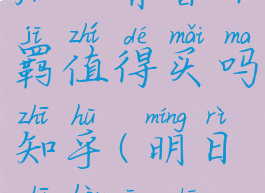 jī zhí dé mǎi ma
羁值得买吗
zhī hū míng rì
知乎(明日